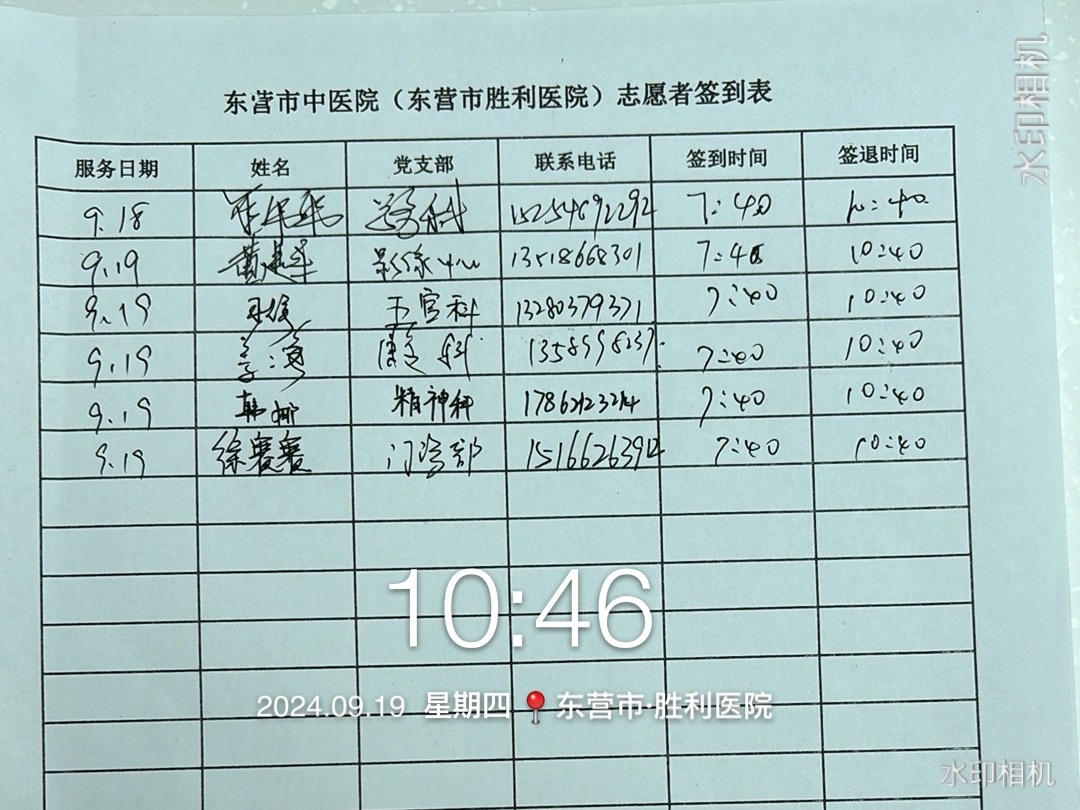 水印相机
东营市中医院（东营市胜利医院）志愿者签到表
服务日期 姓名 党支部 联系电话 签到时间 签退时间
9.18 科 15254692292 7:40 10:40
9.19 黄建军 影像中心 13518668301 7:40 10:40
9.19 五官科 13280379371 7:40 10:40
9.19 7:40 10:40
9.19 韩娜 精神科 7:40 10:40
9.19 徐赛赛 门诊部 15166263912 7:40 10:40
10:46
2024.09.19 星期四 东营市·胜利医院
水印相机